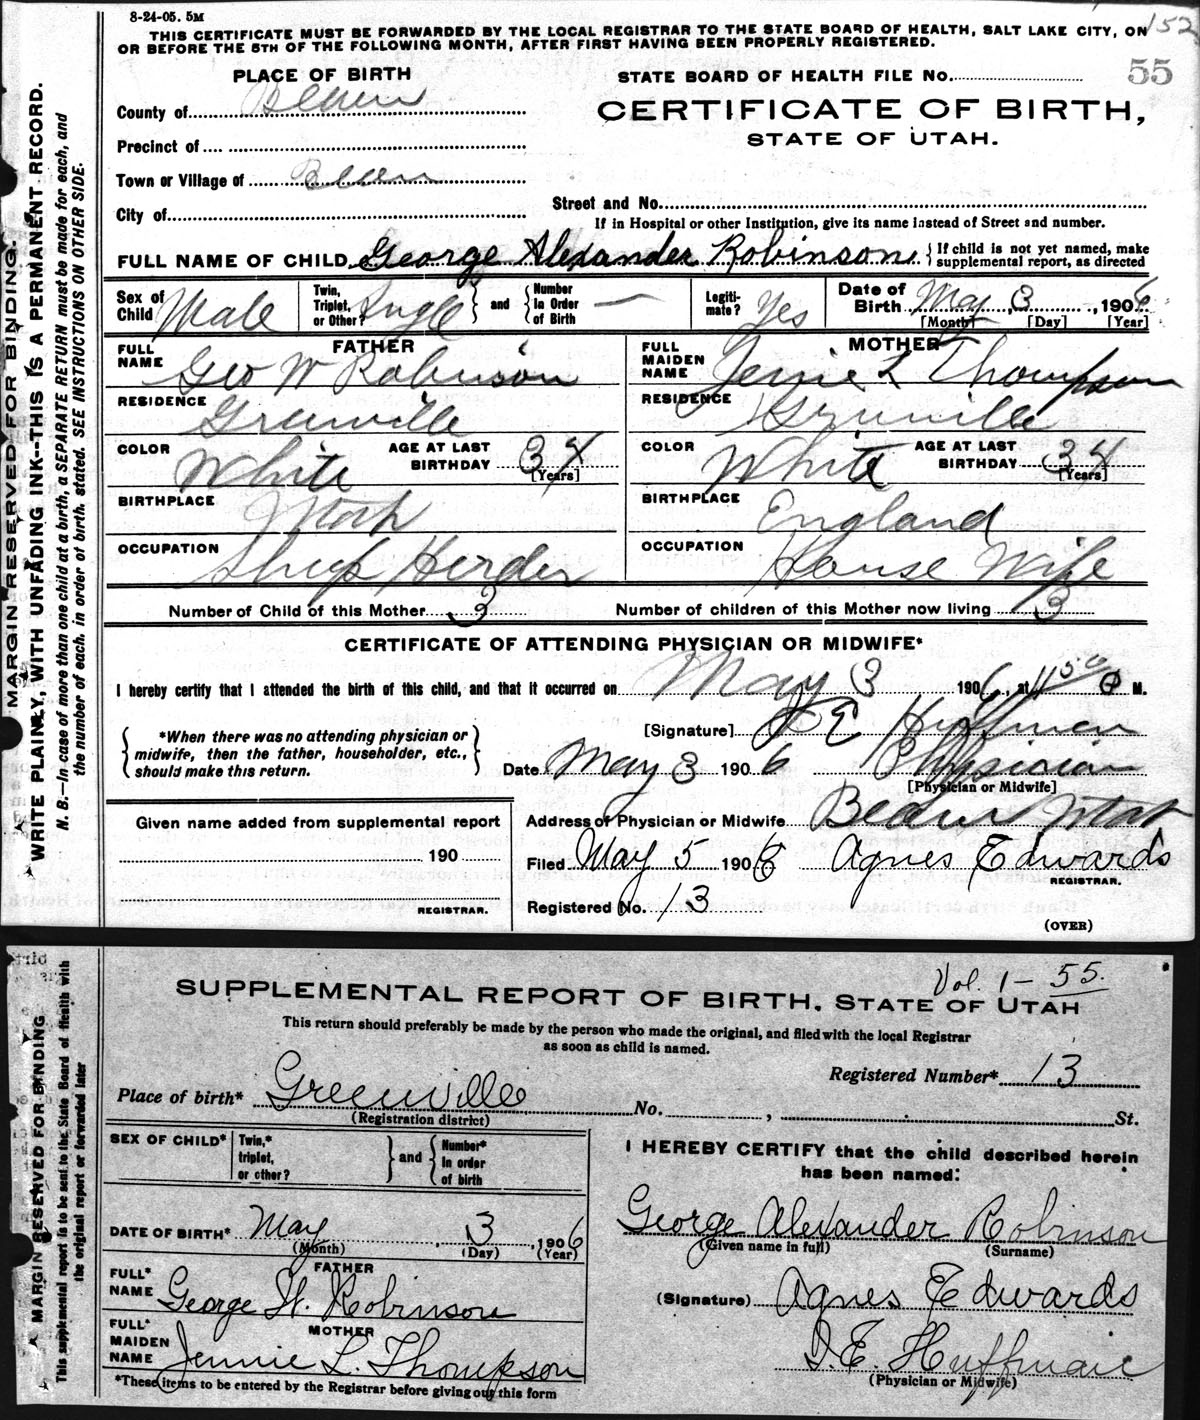 8-24-05. 5M
THIS CERTIFICATE MUST BE FORWARDED BY THE LOCAL REGISTRAR TO THE STATE BOARD OF HEALTH, SALT LAKE CITY, ON
OR BEFORE THE 5TH OF THE FOLLOWING MONTH, AFTER FIRST HAVING BEEN PROPERLY REGISTERED.
152
MARGIN RESERVED FOR BINDING.
WRITE PLAINLY, WITH UNFADING INK--THIS IS A PERMANENT RECORD.
N. B.—In case of more than one child at a birth, a SEPARATE RETURN must be made for each, and
the number of each, in order of birth, stated. SEE INSTRUCTIONS ON OTHER SIDE.
PLACE OF BIRTH
STATE BOARD OF HEALTH FILE No. 55
County of Beaver
CERTIFICATE OF BIRTH,
STATE OF UTAH.
Precinct of
Town or Village of Beaver
City of
Street and No.
If in Hospital or other Institution, give its name instead of Street and number.
FULL NAME OF CHILD George Alexander Robinson. {If child is not yet named, make
supplemental report, as directed
Sex of Child Male Twin, Triplet, or Other? Single } and { Number In Order of Birth — Legiti-mate? Yes Date of Birth May 3, 1906
[Month] [Day] [Year]
FATHER MOTHER
FULL NAME Geo W Robinson FULL MAIDEN NAME Jennie L Thompson
RESIDENCE Greenville RESIDENCE Greenville
COLOR White AGE AT LAST BIRTHDAY 34 [Years] COLOR White AGE AT LAST BIRTHDAY 34 [Years]
BIRTHPLACE Utah BIRTHPLACE England
OCCUPATION Sheep Herder OCCUPATION House Wife
Number of Child of this Mother 3 Number of children of this Mother now living 3
CERTIFICATE OF ATTENDING PHYSICIAN OR MIDWIFE*
I hereby certify that I attended the birth of this child, and that it occurred on May 3 1906, at 11 50 P M.
{ *When there was no attending physician or
midwife, then the father, householder, etc.,
should make this return. }
[Signature] D E Huffman
Date May 3 1906 Physician
[Physician or Midwife]
Given name added from supplemental report
Address of Physician or Midwife Beaver Utah
190
Filed May 5 1906 Agnes Edwards
REGISTRAR.
REGISTRAR.
Registered No. 13
(OVER)
MARGIN RESERVED FOR BINDING
This supplemental report is to be sent to the State Board of Health with
the original report or forwarded later
Vol. 1 - 55.
SUPPLEMENTAL REPORT OF BIRTH. STATE OF UTAH
This return should preferably be made by the person who made the original, and filed with the local Registrar
as soon as child is named.
Registered Number* 13
Place of birth* Greenville No. , St.
(Registration district)
SEX OF CHILD* Twin,* triplet, or other? } and { Number* In order of birth
I HEREBY CERTIFY that the child described herein
has been named:
DATE OF BIRTH* May 3, 1906
(Month) (Day) (Year)
George Alexander Robinson
(Given name in full) (Surname)
FATHER
FULL* NAME George W. Robinson
(Signature) Agnes Edwards
MOTHER
FULL* MAIDEN NAME Jennie L. Thompson
D. E. Huffman
(Physician or Midwife)
*These items to be entered by the Registrar before giving out this form